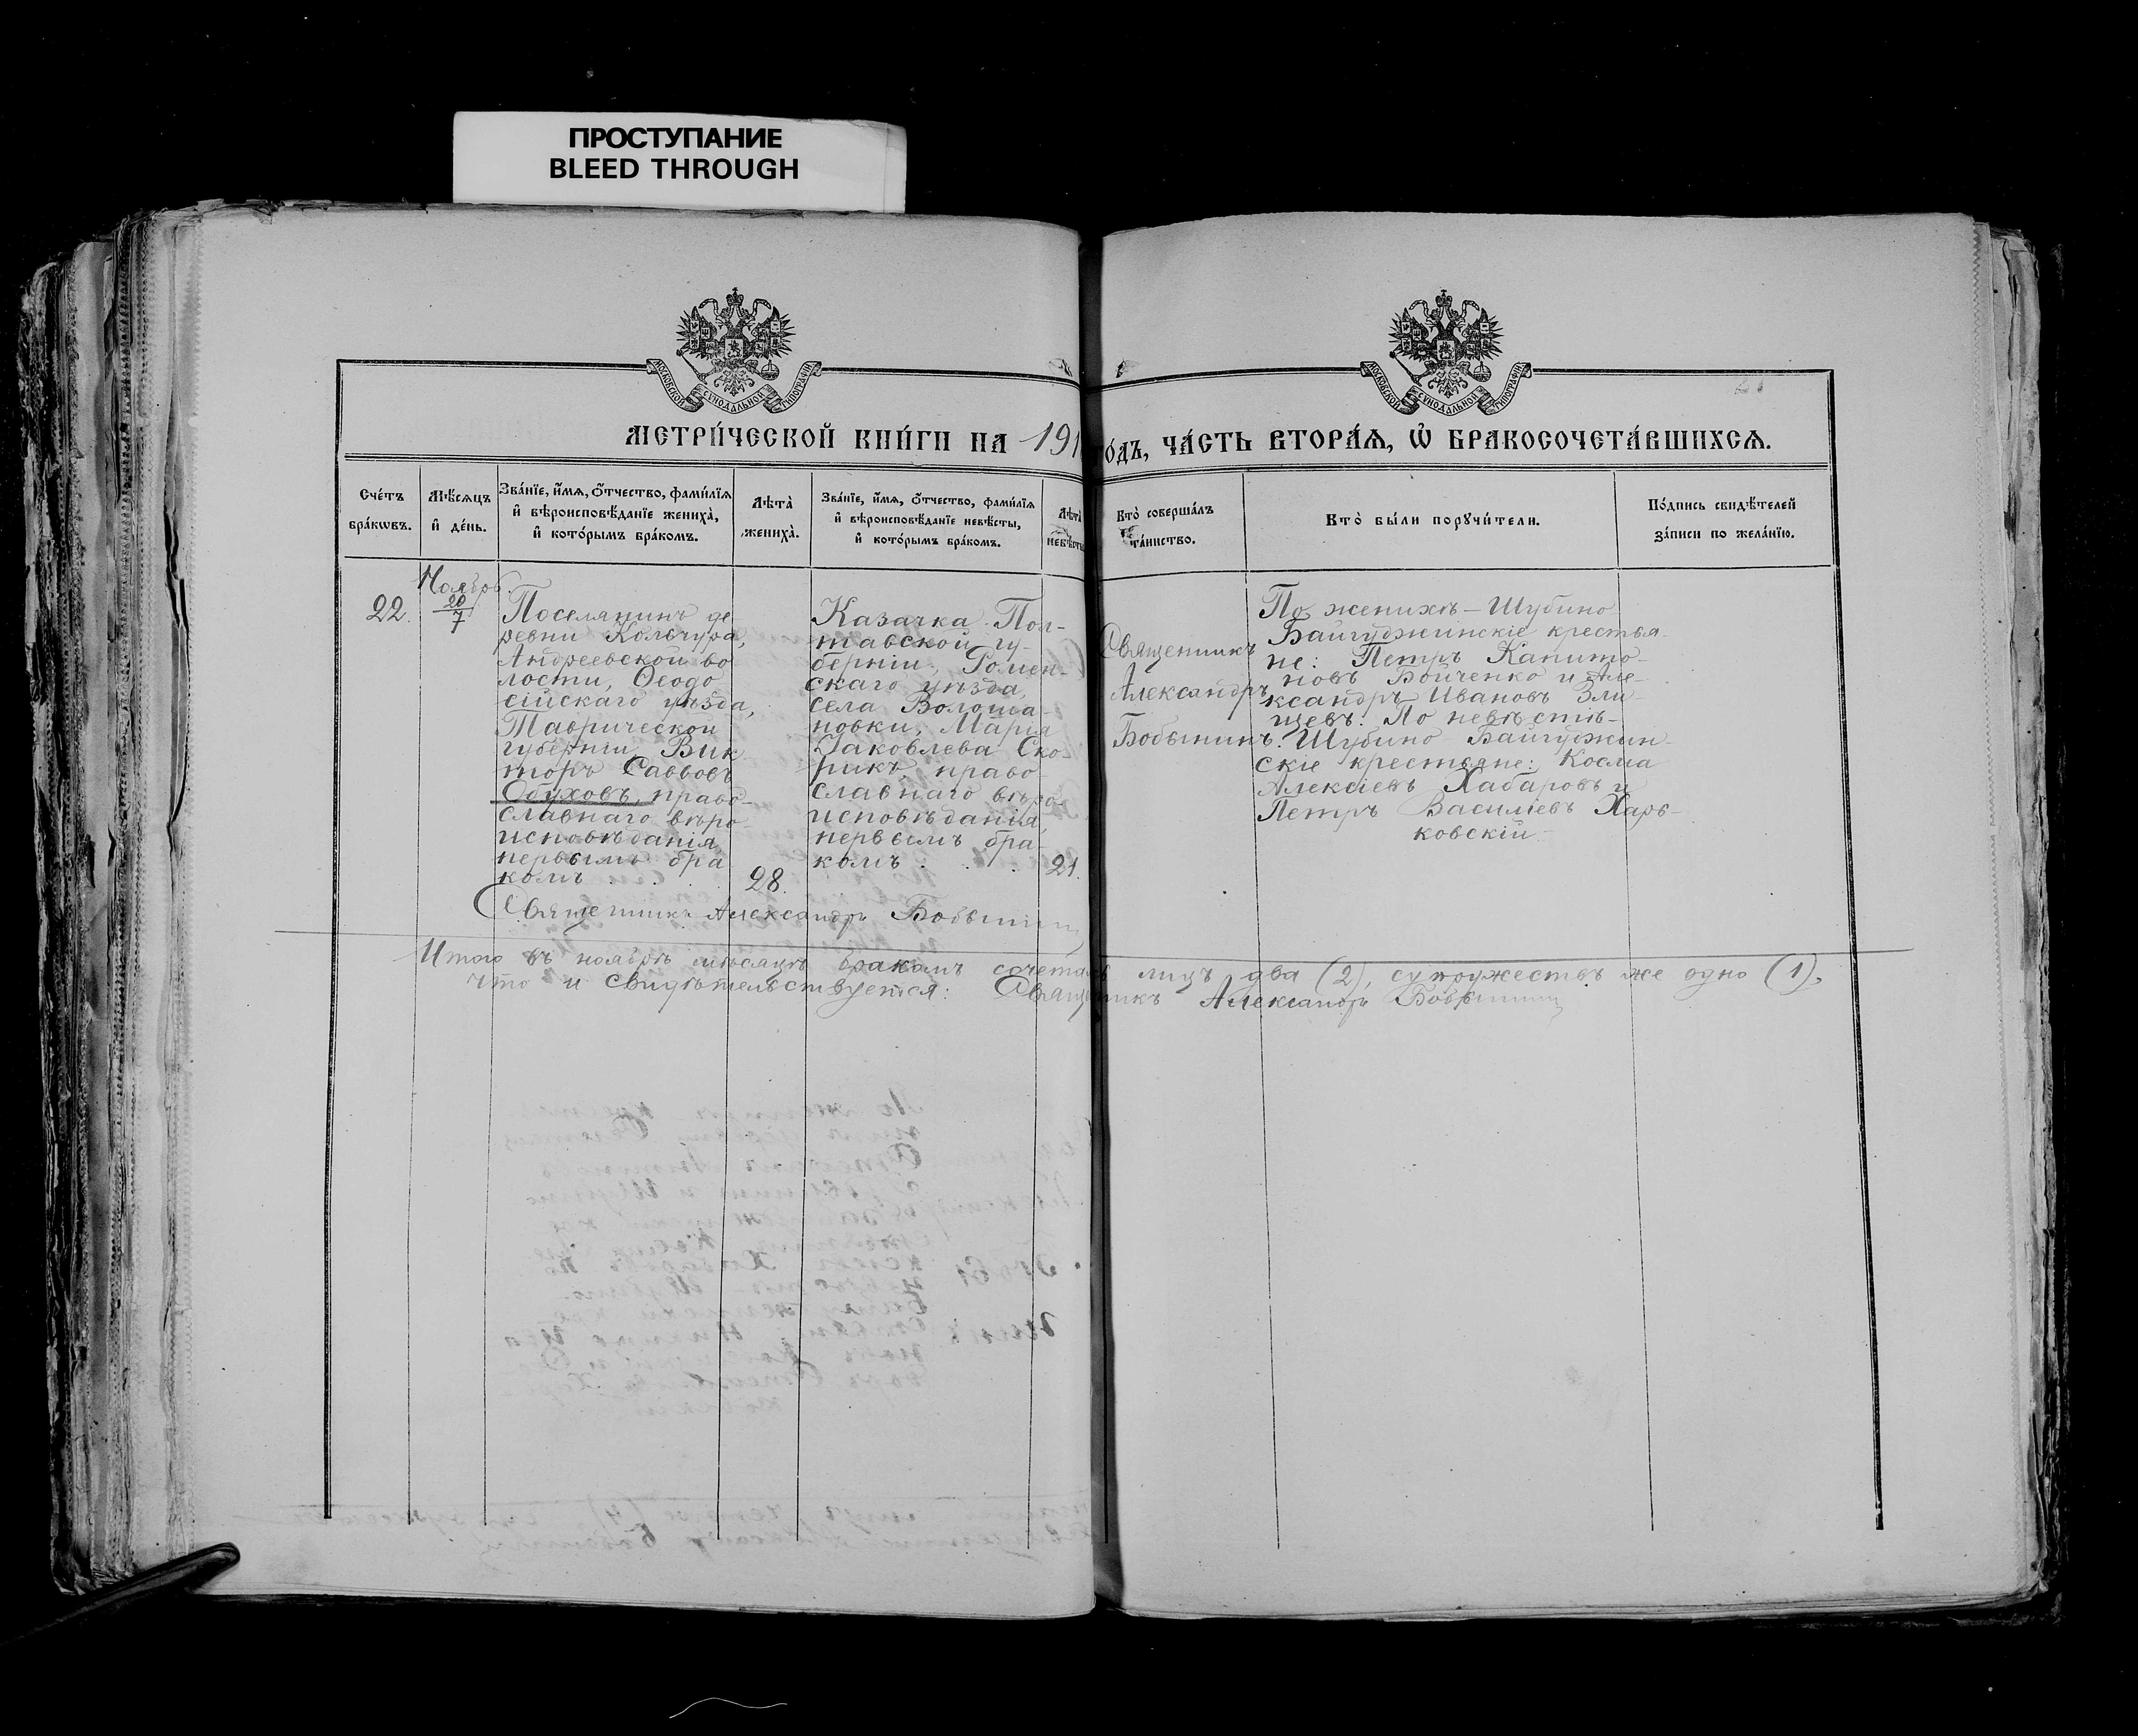 ПРОСТУПАНИЕ
BLEED THROUGH
МОСКОВСКОЙ СѴНОДАЛЬНОЙ ТИПОГРАФІИ
МОСКОВСКОЙ СѴНОДАЛЬНОЙ ТИПОГРАФІИ
МЕТРИ́ЧЕСКОЙ КНИ́ГИ НА 191
О́ДЪ, ЧА́СТЬ ВТОРА́Ѧ, Ѡ҆ БРАКОСОЧЕТА́ВШИХСѦ.
Сче́тъ бра́кѡвъ.
Мѣ́сѧцъ и҆ де́нь.
Зва́нїе, и҆́мѧ, ѻ҆́тчество, фами́лїѧ и҆ вѣроисповѣ́данїе жениха̀, и҆ кото́рымъ бра́комъ.
Лѣта̀ жениха̀.
Зва́нїе, и҆́мѧ, ѻ҆́тчество, фами́лїѧ и҆ вѣроисповѣ́данїе невѣ́сты, и҆ кото́рымъ бра́комъ.
Лѣта̀ невѣ́сты
Кто̀ соверша́лъ та́инство.
Кто̀ бы́ли порꙋчи́тели.
По́дпись свидѣ́телей за́писи по жела́нїю.
22.
Ноябрь.
20
7
Поселянинъ де
ревни Кольчура,
Андреевской во
лости, Ѳеодо
сійскаго уѣзда,
Таврической
губерніи, Вик
торъ Саввовъ
Обуховъ, право-
славнаго вѣро-
исповѣданія,
первымъ бра
комъ . . .
28.
Казачка Пол-
тавской гу-
берніи. Ромен-
скаго уѣзда,
села Волоша-
новки, Марія
Іаковлева Ско-
рикъ, право
славнаго вѣро-
исповѣданія,
первымъ бра-
комъ . . .
21.
Священникъ
Александръ
Бобынинъ.
По женихѣ – Шубино
Байгуджинскіе крестья-
не: Петръ Капито-
новъ Бойченко и Але-
ксандръ Ивановъ Зли-
щевъ. По невѣстѣ-
Шубино Байгуджин-
скіе крестьяне: Косма
Алексіевъ Хабаровъ и
Петръ Василіевъ Харь-
ковскій.
Священникъ Александръ Бобынинъ
Итого въ ноябрѣ мѣсяцѣ бракомъ сочетал лицъ два (2), супружествъ же одно (1),
что и свидѣтельствуется: Священникъ Александръ Бобынинъ